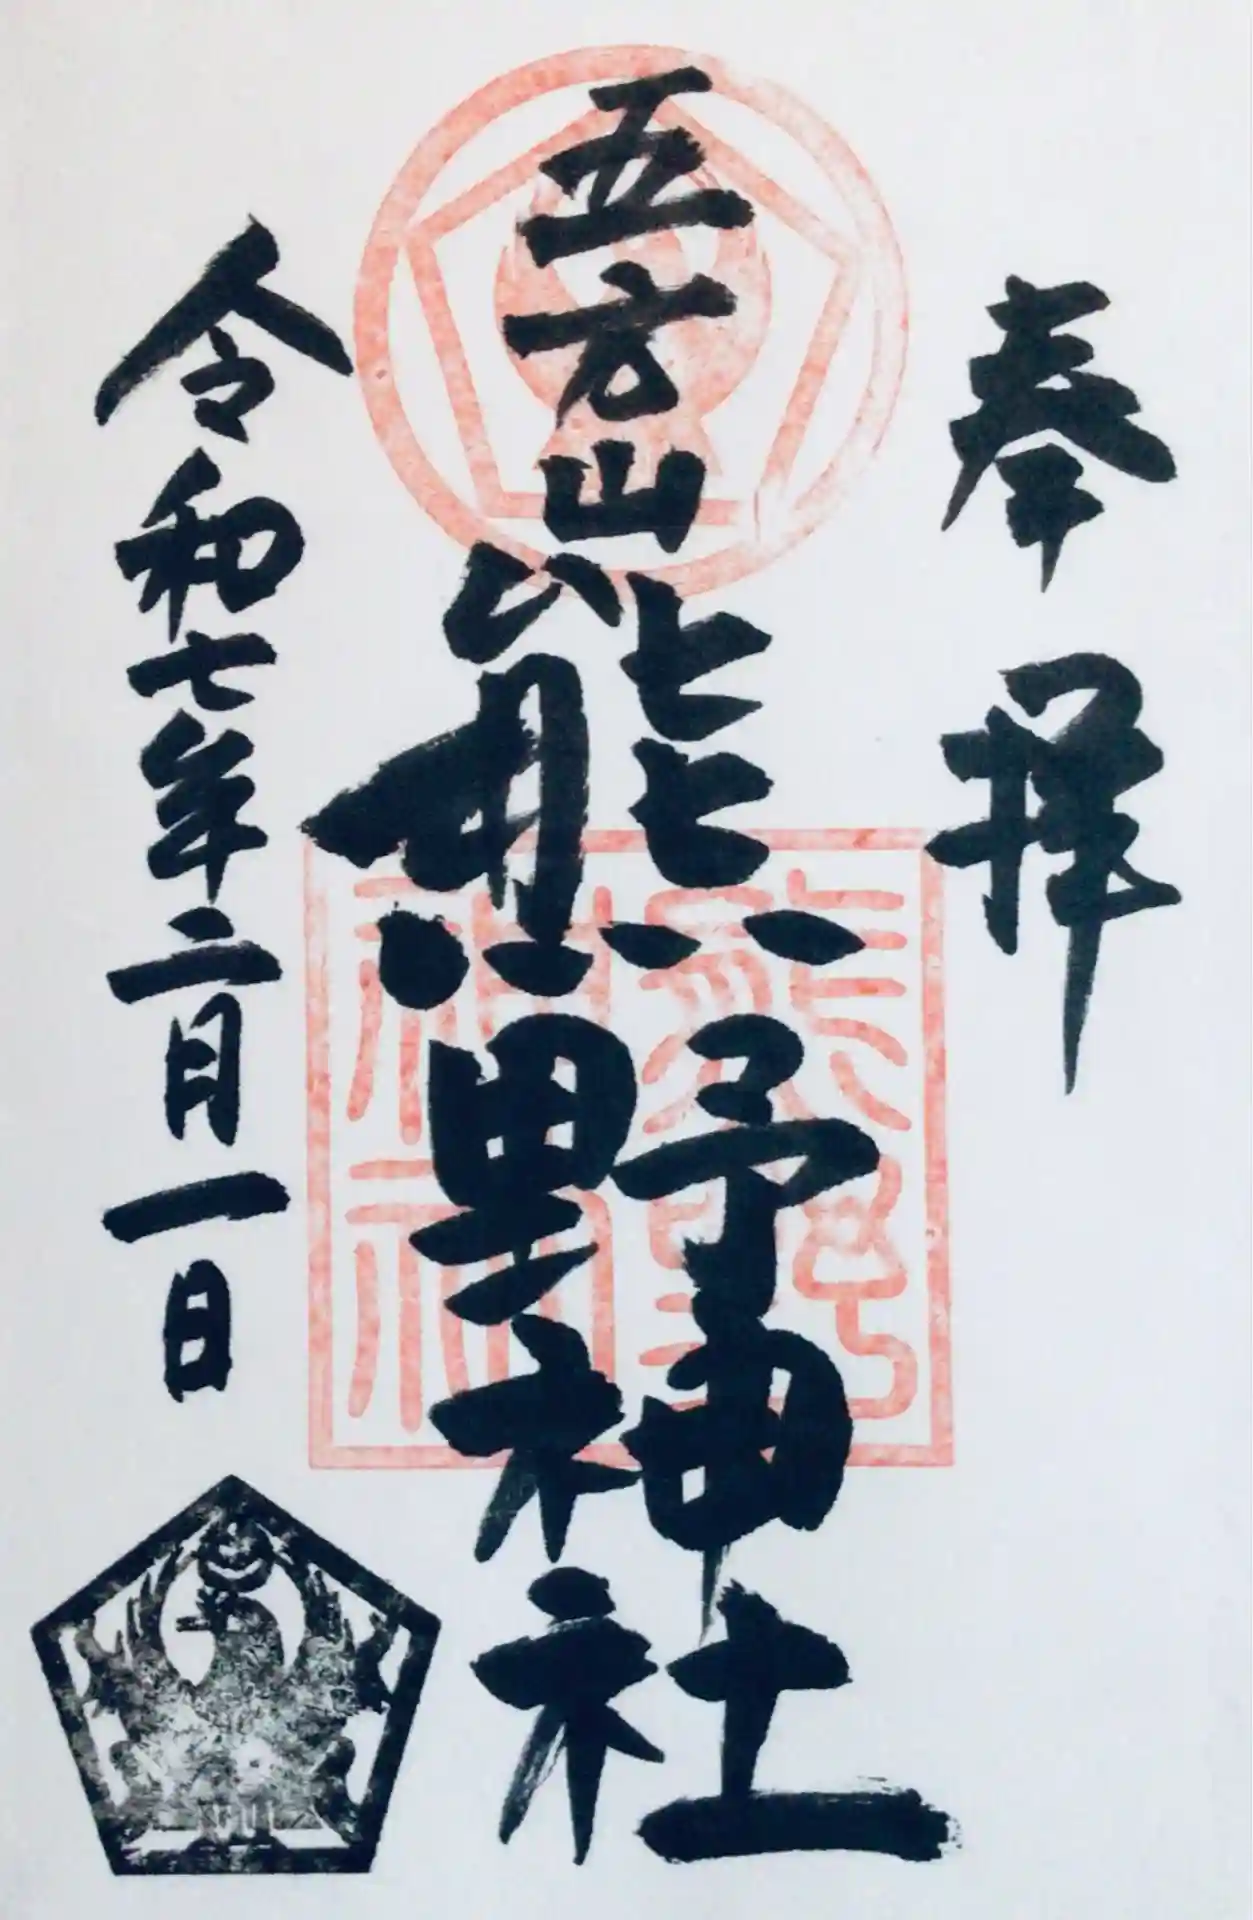 奉拝
五方山
熊野神社
令和七年二月一日
熊野
神社